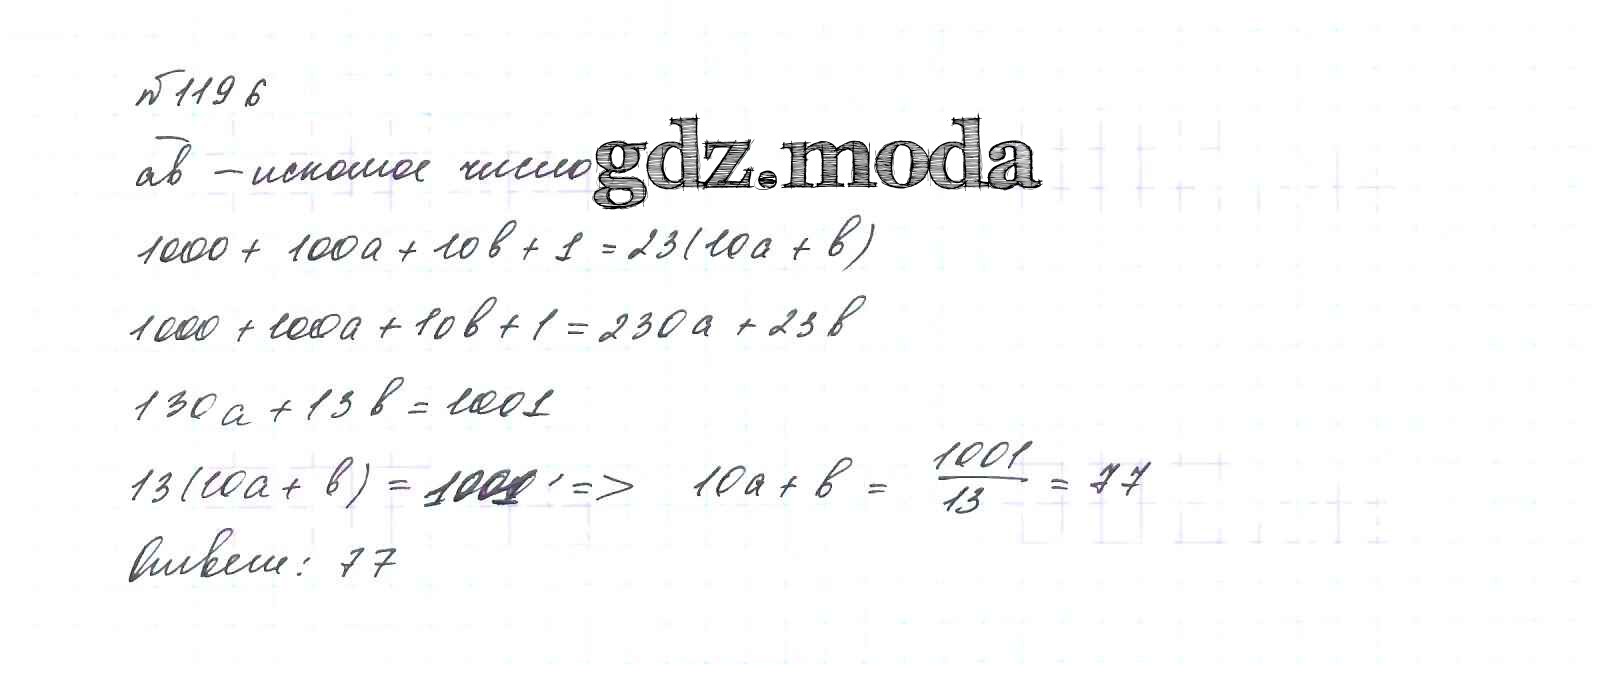 №1196
ab – искомое число
gdz.moda
1000 + 100a + 10b + 1 = 23(10a + b)
1000 + 100a + 10b + 1 = 230a + 23b
130a + 13b = 1001
13(10a + b) = 1001 => 10a + b = 1001/13 = 77
Ответ: 77